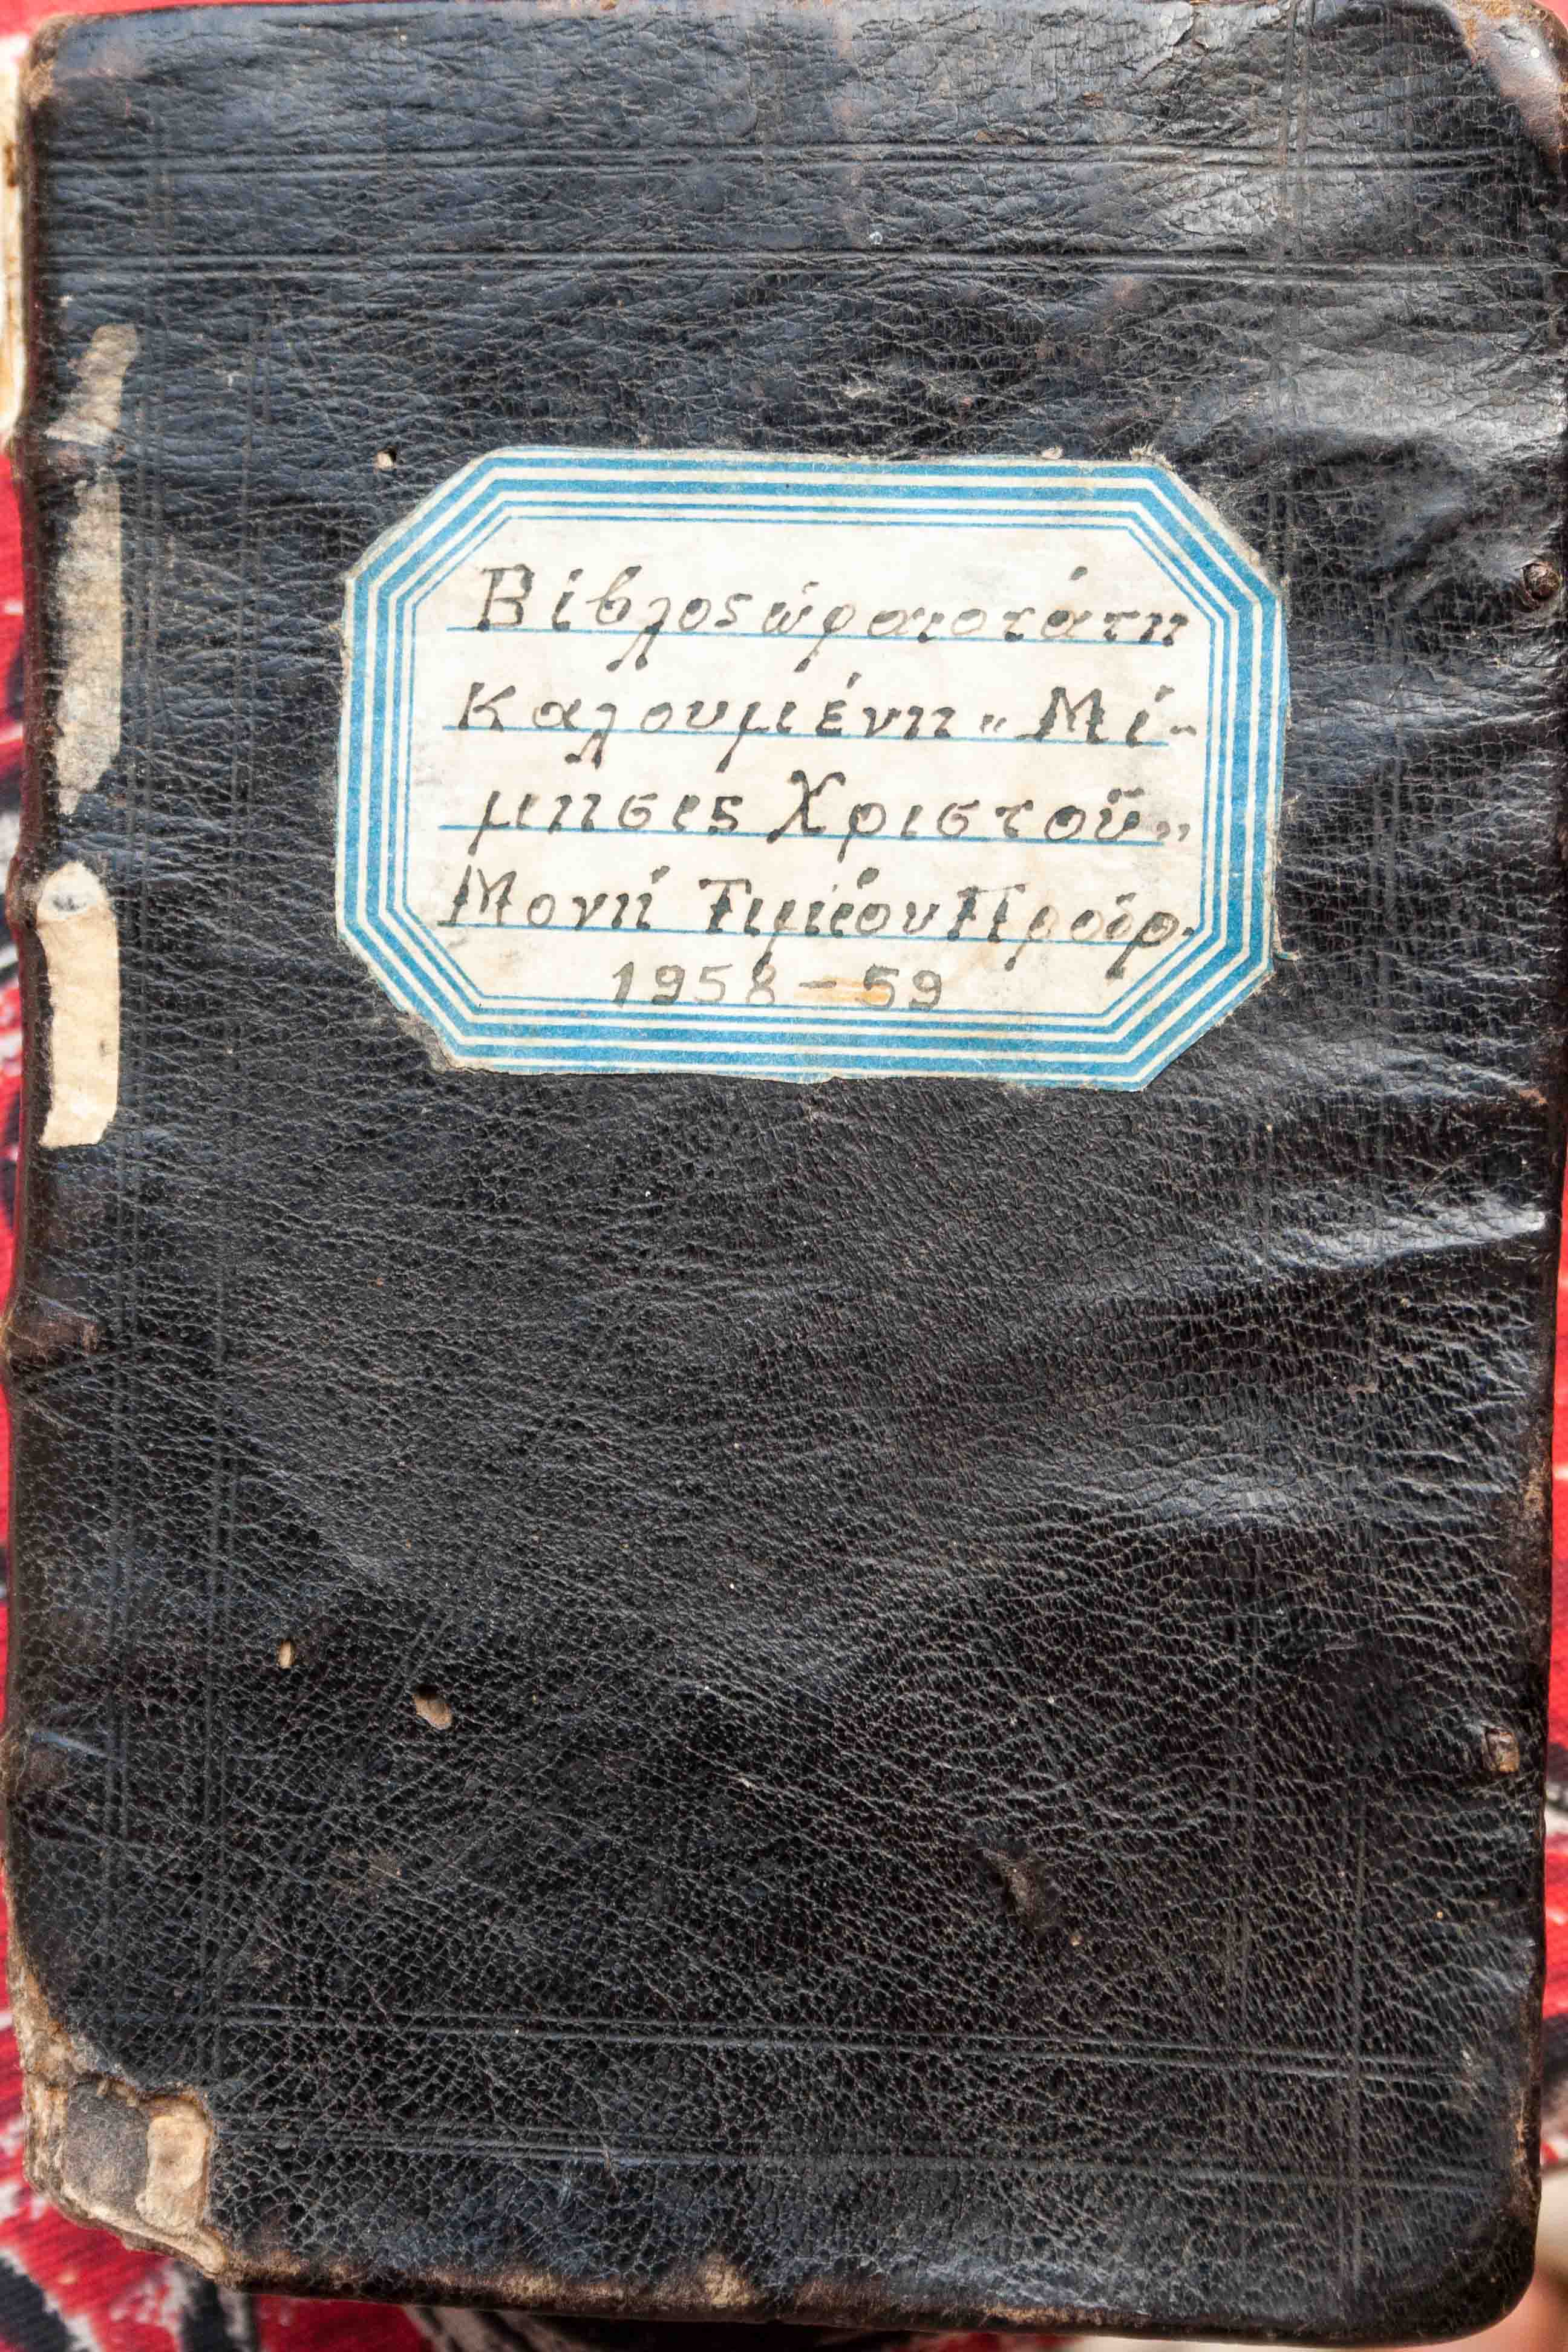 Βίβλος ὡραιοτάτη
Καλουμένη „ Μί-
μησις Χριστοῦ „
Μονή Τιμίου Προδρ.
1958-59